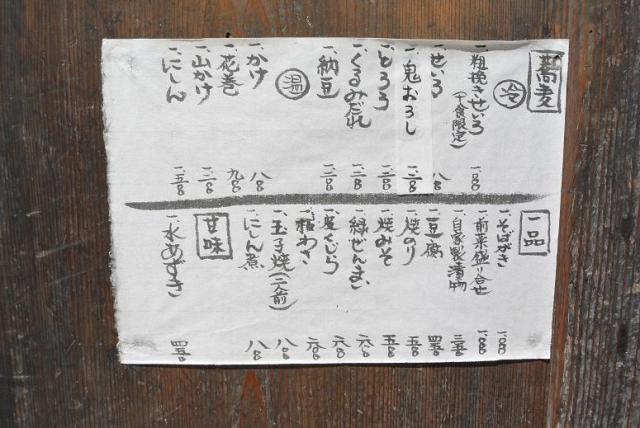 蕎麦
冷
一、粗挽きせいろ
(十食限定)
一、〇〇〇
一、せいろ 八〇〇
一、鬼おろし 一、二〇〇
一、とろろ 一、二〇〇
一、くるみだれ 一、二〇〇
一、納豆 一、二〇〇
温
一、かけ 八〇〇
一、花巻 九〇〇
一、山かけ 一、二〇〇
一、にしん 一、五〇〇
一品
一、そばがき
一、前菜盛り合せ 一、〇〇〇
一、自家製漬物 三五〇
一、豆腐 四五〇
一、焼のり 五〇〇
一、焼みそ 五〇〇
一、緑ぜんまい 六〇〇
一、皮くじら 六〇〇
一、板わさ 六〇〇
一、玉子焼(二人前) 八〇〇
一、にしん煮 八〇〇
甘味
一、水あずき 四五〇